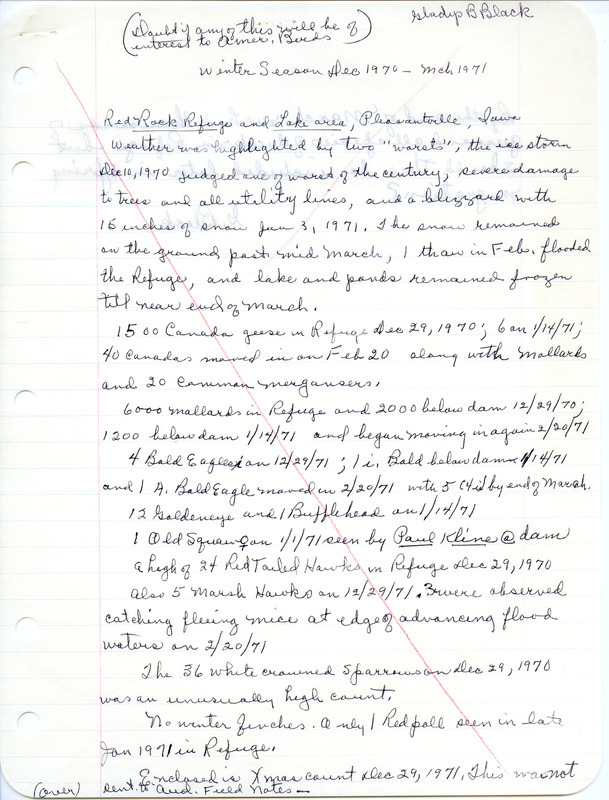 Gladys B Black
(Doubt if any of this will be of
interest to Amer. Birds)
Winter Season Dec 1970 - Mch 1971
Red Rock Refuge and Lake area, Pleasantville, Iowa
Weather was highlighted by two "worsts", the ice storm
Dec 10, 1970 judged one of worst of the century, severe damage
to trees and all utility lines, and a blizzard with
15 inches of snow Jan 3, 1971. The snow remained
on the ground past mid March, 1 thaw in Feb. flooded
the Refuge, and lake and ponds remained frozen
till near end of March.
1500 Canada geese in Refuge Dec 29, 1970; 6 on 1/14/71;
40 Canadas moved in on Feb 20 along with Mallards
and 20 Common mergansers.
6000 mallards in Refuge and 2000 below dam 12/29/70;
1200 below dam 1/14/71 and began moving in again 2/20/71
4 Bald Eagles on 12/29/71; 1 i. Bald below dam 1/14/71
and 1 A. Bald Eagle moved in 2/20/71 with 5 by end of March.
12 Goldeneye and 1 Bufflehead on 1/14/71
1 Old Squaw on 1/1/71 seen by Paul Kline @ dam
a high of 24 Red Tailed Hawks in Refuge Dec 29, 1970
Also 5 Marsh Hawks on 12/29/71. 3 were observed
catching fleeing mice at edge of advancing flood
waters on 2/20/71
The 36 White crowned Sparrows on Dec 29, 1970
was an unusually high count.
No winter finches. Only 1 Redpoll seen in late
Jan 1971 in Refuge.
Enclosed is Xmas count Dec 29, 1971. This was not
(over) sent to Aud. Field Notes -